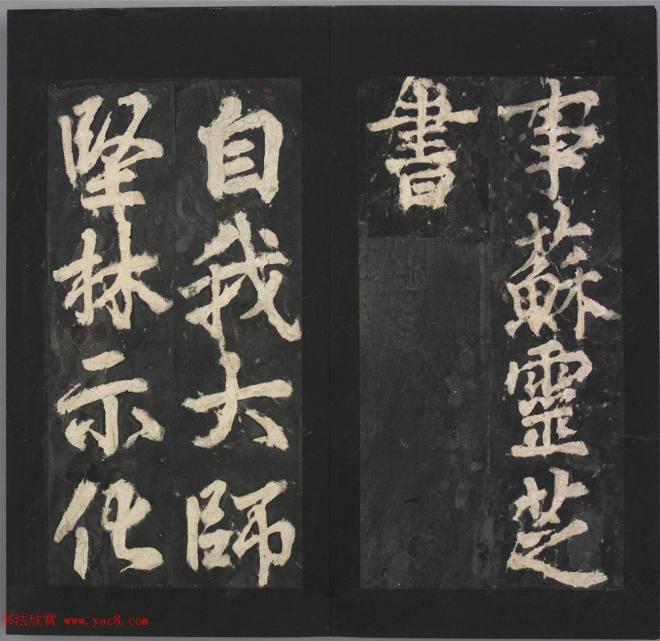 事蘇靈芝
書
自我大師
堅林示化
书法欣赏 www.yac8.com